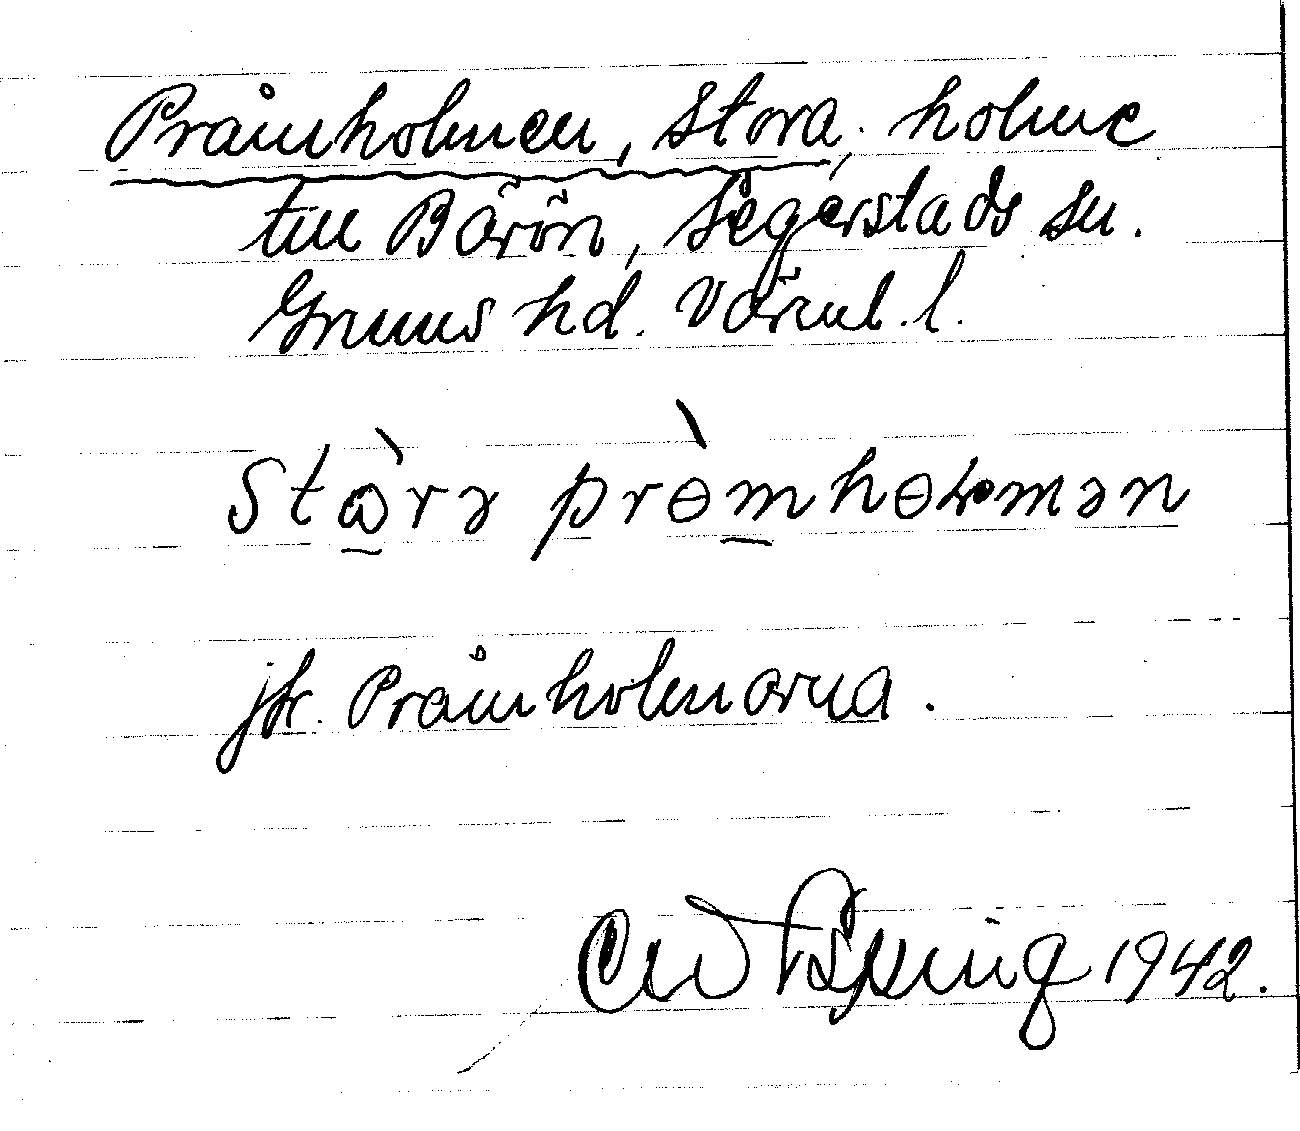 Pråmholmen, Stora, holme
till Bärön, Segerstads sn.
Grums hd. Värml. l.
stɷ̀rə prɵ̀mhɵɫmən
jfr. Pråmholmarna.
1942.